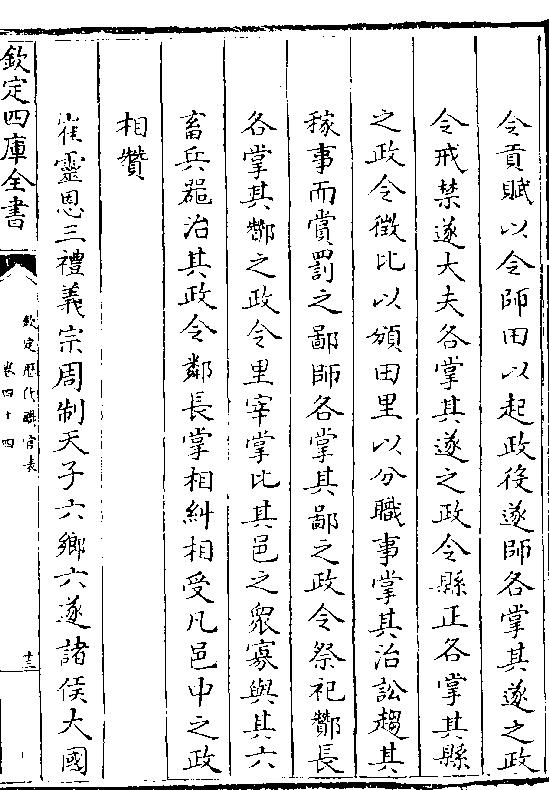 令貢賦以令師田以起政役遂師各掌其遂之政
令戒禁遂大夫各掌其遂之政令縣正各掌其縣
之政令徵比以頒田里以分職事掌其治訟趨其
稼事而賞罰之鄙師各掌其鄙之政令祭祀酇長
各掌其酇之政令里宰掌比其邑之衆寡與其六
畜兵器治其政令鄰長掌相糾相受凡邑中之政
相贊
崔靈恩三禮義宗周制天子六鄉六遂諸侯大國
欽定四庫全書
欽定歷代職官表
卷四十四
十三